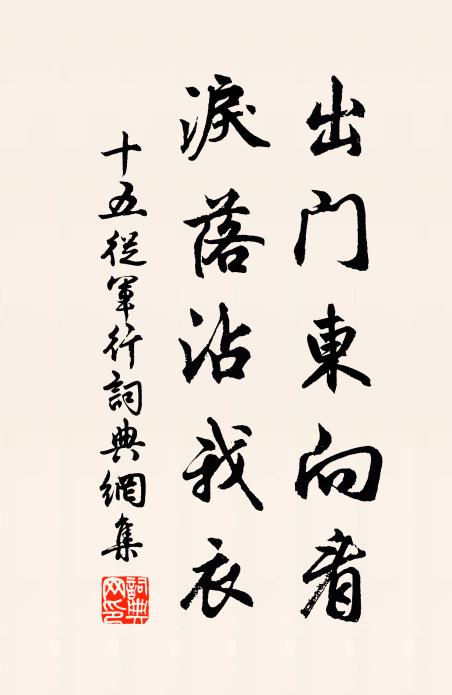 出门東向看
淚落沾我衣
十五從軍行詞典網集
詞典网印